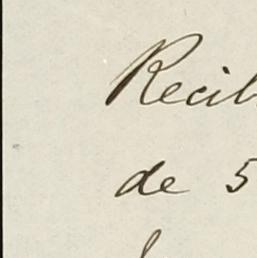 Recib
de 5